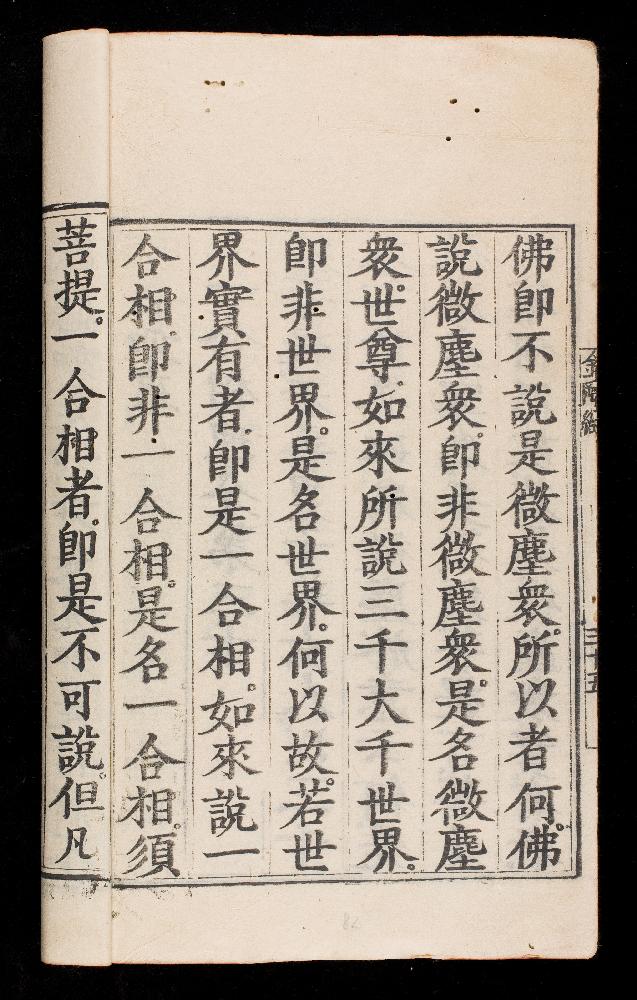 佛即不說是微塵衆。所以者何。佛
說微塵衆。即非微塵衆。是名微塵
衆。世尊。如來所說三千大千世界。
即非世界。是名世界。何以故。若世
界實有者。即是一合相。如來說一
合相。即非一合相。是名一合相。須
菩提。一合相者。即是不可說。但凡
金剛經
三十五
82